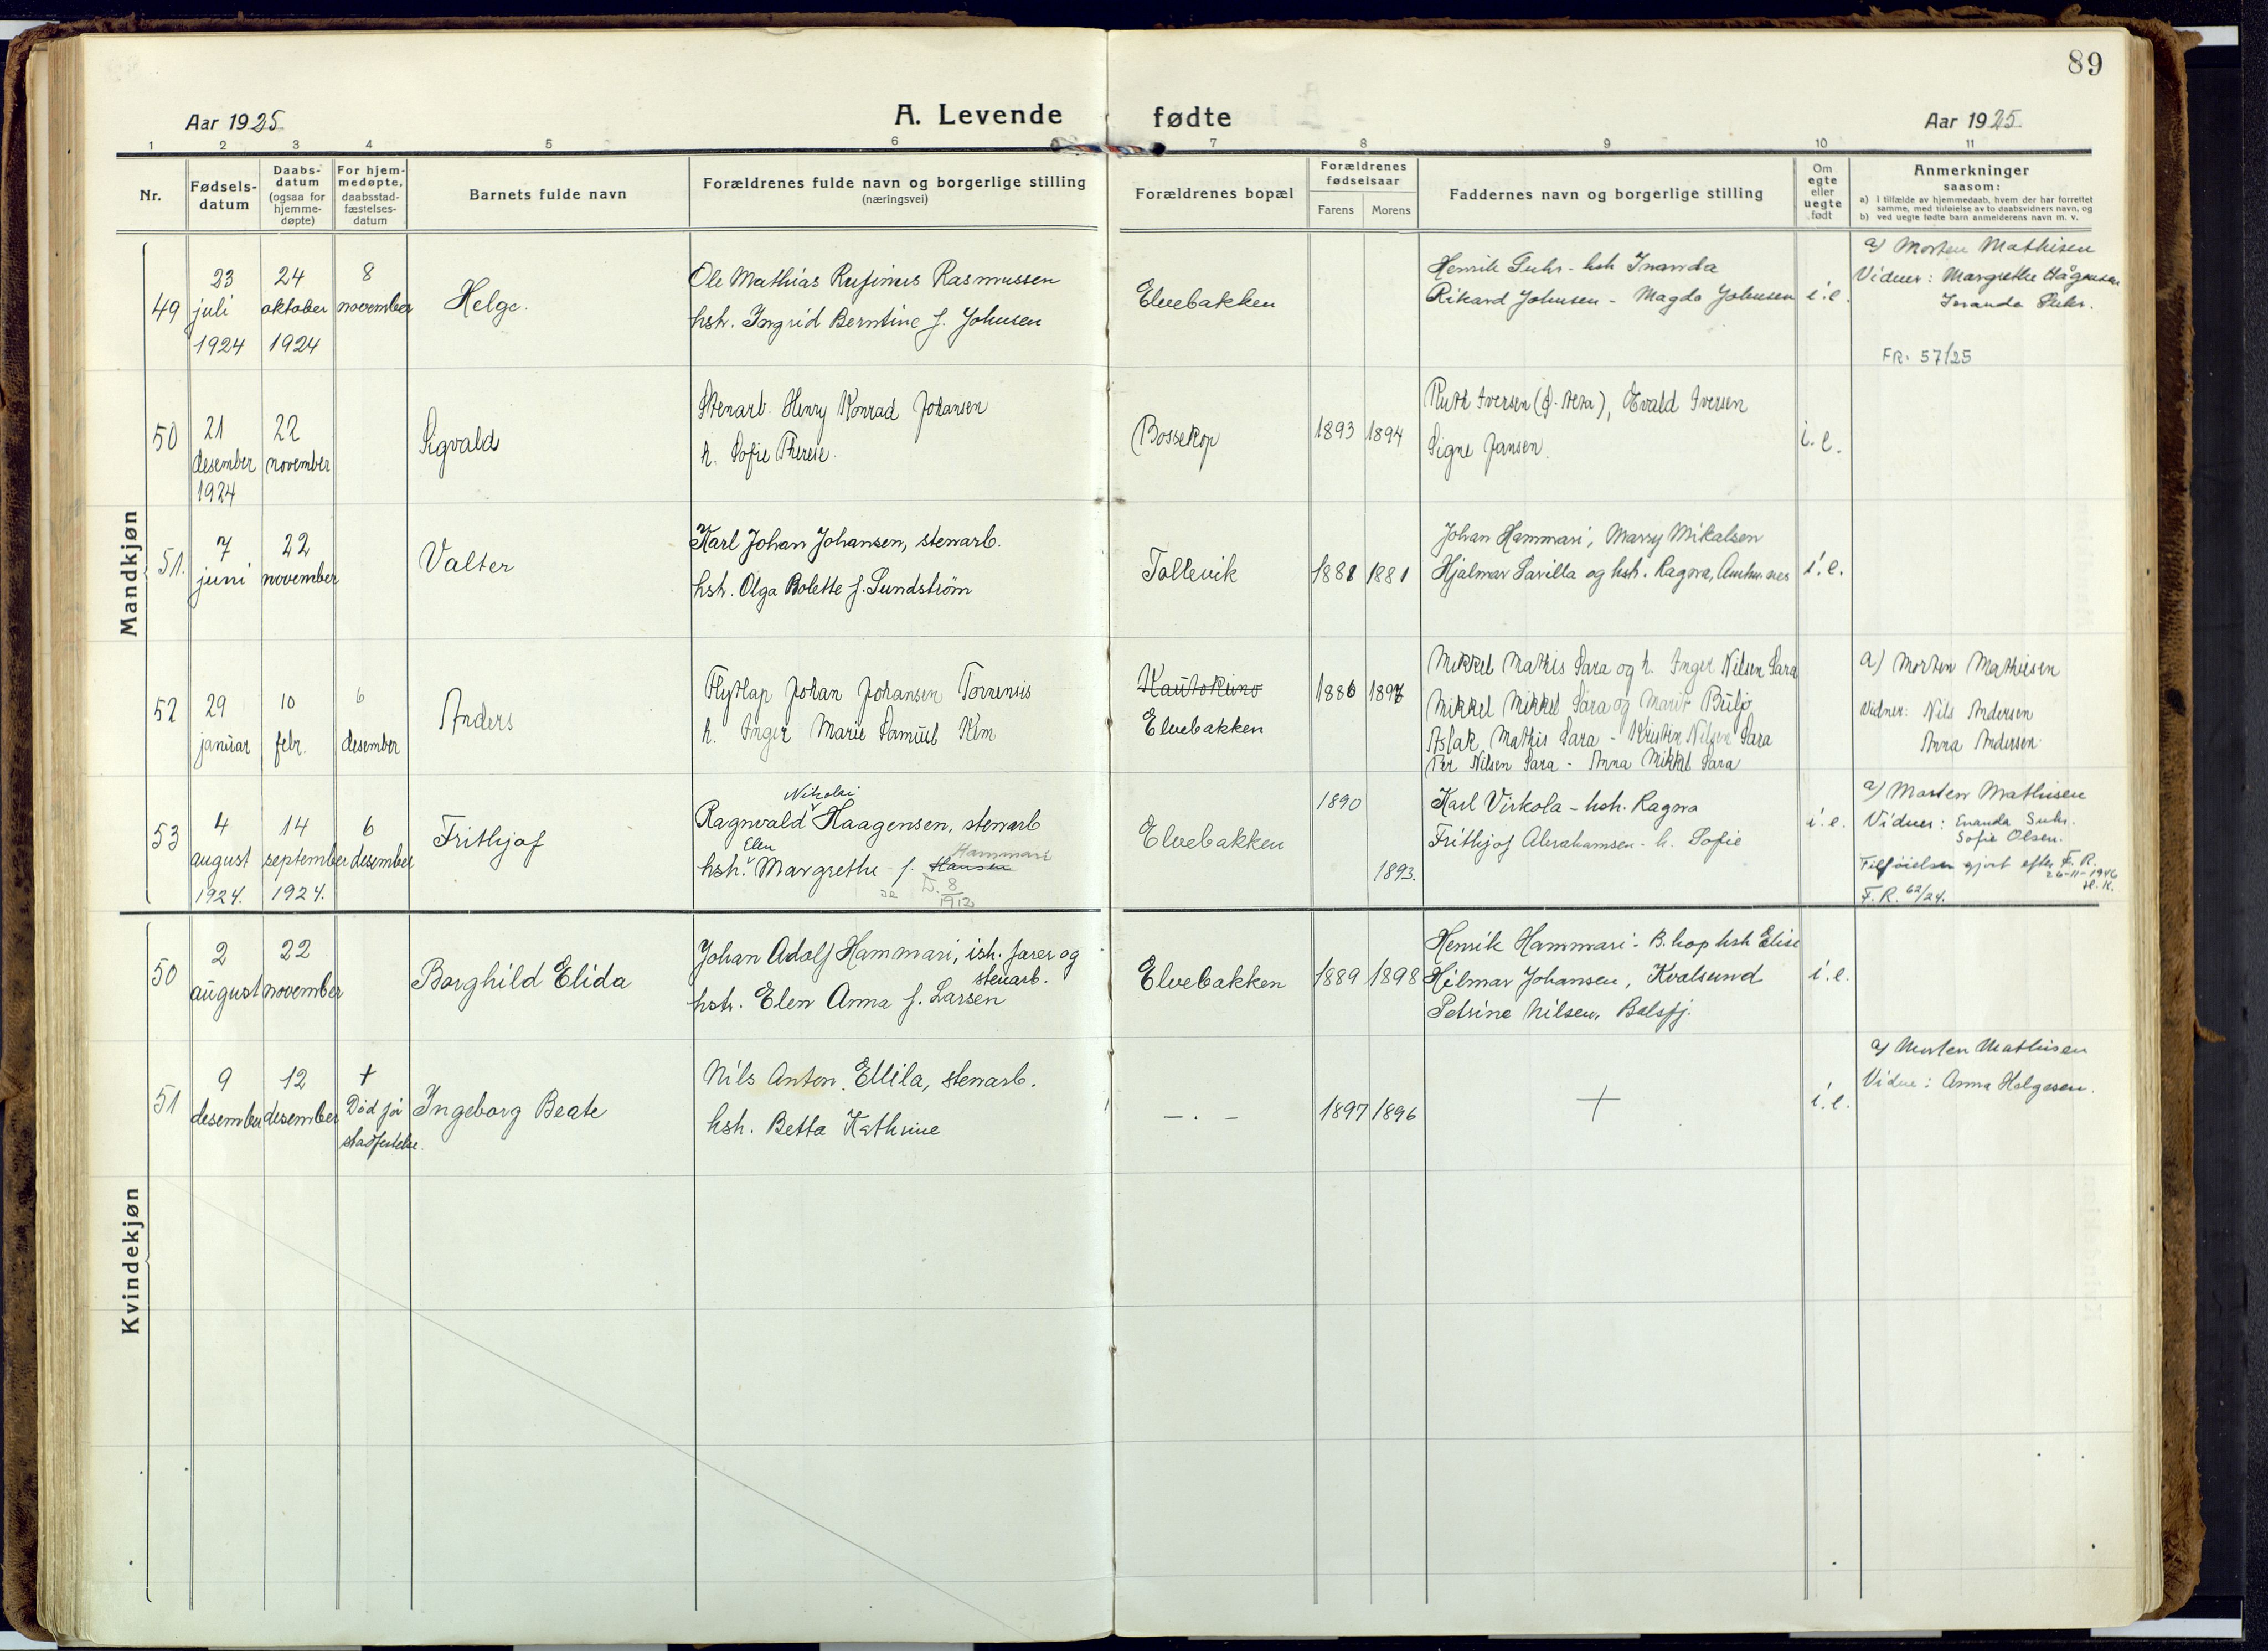 89
Aar 1925
A. Levende
fødte
Aar 1925
1 2 3 4 5 6 7 8 9 10 11
Nr.
Fødsels-
datum
Daabs-
datum
(ogsaa for
hjemme-
døpte)
For hjem-
medøpte,
daabsstad-
fæstelses-
datum
Barnets fulde navn
Forældrenes fulde navn og borgerlige stilling
(næringsvei)
Forældrenes bopæl
Forældrenes
fødselsaar
Farens
Morens
Faddernes navn og borgerlige stilling
Om
egte
eller
uegte
født
Anmerkninger
saasom:
a) I tilfælde av hjemmedaab, hvem der har forrettet
samme, med tilføielse av to daabsvidners navn, og
b) ved uegte fødte barn anmelderens navn m. v.
Mandkjøn
49
23
juli
1924
24
oktober
1924
8
november
Helge.
Ole Mathias Rufinus Rasmussen
hstr. Ingrid Berntine f. Johnsen
Elvebakken
Henrik Suhr - hstr
Rikard Johnsen - Magda Johnsen
i.e.
a) Morten Mathisen
Vidner: Margrethe Hågensen
Suhr.
FR. 57/25
50
21
desember
1924
22
november
Sigvald
Stenarb. Henry Konrad Johansen
h. Sofie Therese.
Bossekop
1893
1894
Ruth Iversen, Evald Iversen
Signe Jansen.
i.e.
51.
7
juni
22
november
Valter
Karl Johan Johansen, stenarb.
hstr. Olga Bolette f. Sundstrøm
Tollevik
1881
1881
Johan Hammari, Marry Mikalsen
Hjalmar Savilla og hstr. Ragna,
i.e.
52
29
januar
10
febr.
6
desember
Anders
Flytlap Johan Johansen Tornensis
h. Inger Marie Samuel Kem
Kautokeino
Elvebakken
1886
1897
Mikkel Mathis Sara og h. Inger Nilsen Sara
Mikkel Mikkel Sara og Marit Buljo
Aslak Mathis Sara - Kristen Nilsen Sara
Per Nilsen Sara - Anna Mikkel Sara
a) Morten Mathisen
Vidner: Nils Andersen
Anna Andersen
53
4
august
1924.
14
september
1924.
6
desember
Frithjof
Nikolai
Ragnvald Haagensen, stenarb
Elen
Hammari
hstr. Margrethe f. Hansen
D. 8
1912
Elvebakken
1890
1893.
Karl Virkola - hstr. Ragna
Frithjof Abrahamsen - h. Sofie
i.e.
a) Morten Mathisen
Vidner: Suhr.
Sofie Olsen.
Tilføielsen gjort efter F. R.
26-11-1946
H. K.
F.R. 62/24.
Kvindekjøn
50
2
august
22
november
Borghild Elida
Johan Adolf Hammari, ish. farer og
stenarb.
hstr. Elen Anna f. Larsen
Elvebakken
1889
1898
Henrik Hammari - B.kop hstr Elise
Hilmar Johansen, Kvalsund
Petrine Nilsen, Balsfj.
i.e.
51
9
desember
12
desember
+
Død før
stadfestelse.
Ingeborg Beate
Nils Anton Ellila, stenarb.
hstr. Betta Kathrine
— . —
1897
1896
+
i.e.
a) Morten Mathisen
Vidne: Anna Helgesen.